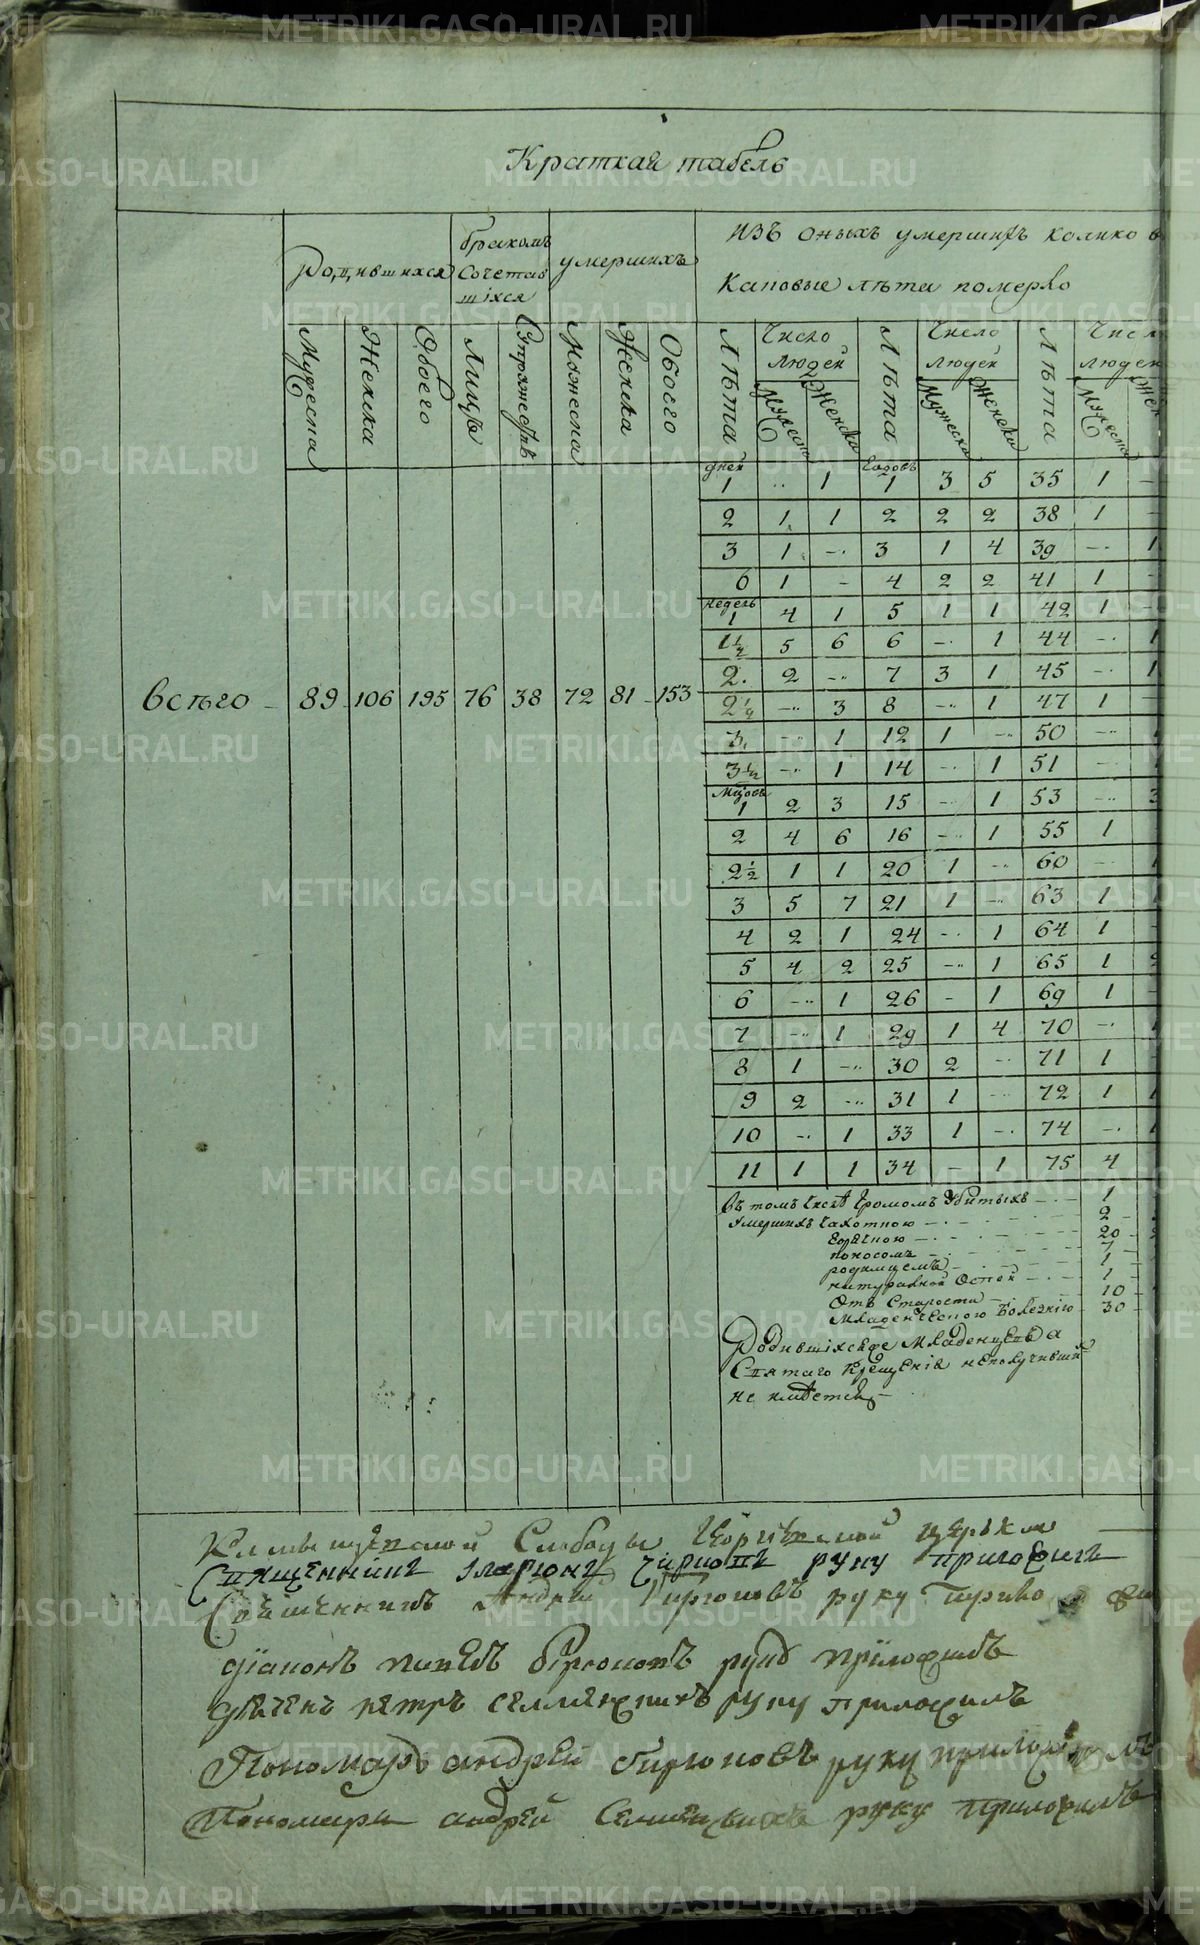 Краткая табель
Родившихся
бракомъ сочетавшіхся
умершихъ
изъ оныхъ умершихъ колико в
каковые лѣта померло
Мужеска
Женска
Обоего
Лицъ
Супружествъ
Мужеска
Женска
Обоего
Лѣта
Число людей
Мужеска
Женска
Лѣта
Число людей
Мужеска
Женска
Лѣта
Число людей
Мужеска
Жен
всѣго 89 106 195 76 38 72 81 153
дней 1 .. 1 годовъ 1 3 5 35 1 -
2 1 1 2 2 2 38 1 -
3 1 -. 3 1 4 39 -. 1
6 1 - 4 2 2 41 1 -
недель 1 4 1 5 1 1 42 1 -
1 1/2 5 6 6 -. 1 44 -. 1
2. 2 -.. 7 3 1 45 -. 1
2 1/2 -.. 3 8 -.. 1 47 1 -
3. -.. 1 12 1 -.. 50 -..
3 1/2 -.. 1 14 -. 1 51 -.
мцовъ 1 2 3 15 -. 1 53 -.. 3
2 4 6 16 -. 1 55 1
2 1/2 1 1 20 1 -.. 60 -.
3 5 7 21 1 -.. 63 1
4 2 1 24 -. 1 64 1 -
5 4 2 25 -.. 1 65 1 2
6 -.. 1 26 - 1 69 1 -
7 -.. 1 29 1 4 70 -. 1
8 1 -.. 30 2 -. 71 1
9 2 -.. 31 1 -.. 72 1 1
10 -. 1 33 1 -. 74 -. 1
11 1 1 34 - 1 75 4
въ томъ числѣ громомъ убитыхъ - 1
умершихъ чахотною - 2
горячною - 20
поносомъ - 7
родимцемъ - 1
натуральной оспой - 1
отъ старости - 10
младенческою болезнію - 30
Родившіхся младенцевъ а
святаго крещенія неполучившихъ
не имѣется
слободы Георгіевской церкви
Священникъ Іларіонъ Бирюковъ руку приложилъ
Священникъ Андрей Бирюковъ руку
діаконъ Бірюковъ руку прїложилъ
дьячекъ петръ руку приложилъ
Пономарь андрей бирюковъ руку приложилъ
Пономарь андрей руку приложилъ
METRIKI.GASO-URAL.RU